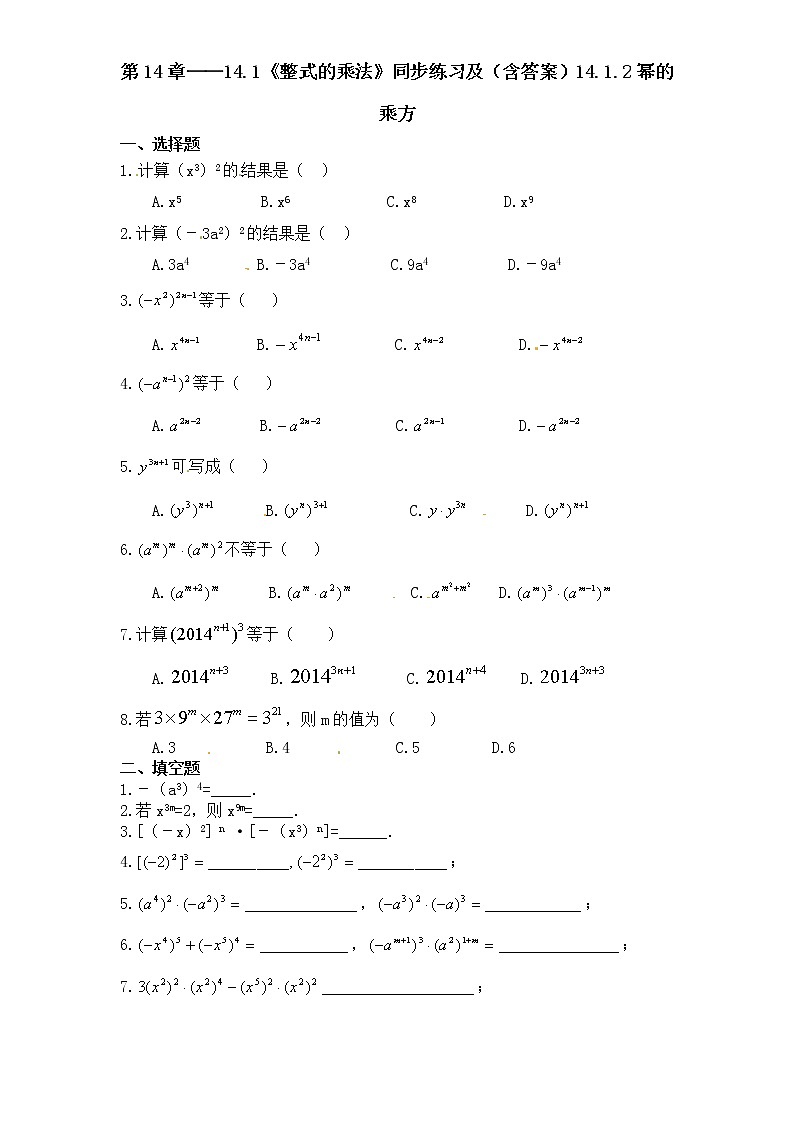 第14章——14.1《整式的乘法》同步练习及（含答案）14.1.2幂的
乘方
一、选择题
1.计算（x³）²的结果是（ ）
A.x⁵ B.x⁶ C.x⁸ D.x⁹
2.计算（－3a²）²的结果是（ ）
A.3a⁴ B.－3a⁴ C.9a⁴ D.－9a⁴
3.(−x²)²ⁿ⁻¹等于（ ）
A.x⁴ⁿ⁻¹ B.−x⁴ⁿ⁻¹ C.x⁴ⁿ⁻² D.−x⁴ⁿ⁻²
4.(−aⁿ⁻¹)²等于（ ）
A.a²ⁿ⁻² B.−a²ⁿ⁻² C.a²ⁿ⁻¹ D.−a²ⁿ⁻²
5.y³ⁿ⁺¹可写成（ ）
A.(y³)ⁿ⁺¹ B.(yⁿ)³⁺¹ C.y·y³ⁿ D.(yⁿ)ⁿ⁺¹
6.(aᵐ)ᵐ·(aᵐ)²不等于（ ）
A.(aᵐ⁺²)ᵐ B.(aᵐ·a²)ᵐ C.a^(m²+m²) D.(aᵐ)³·(aᵐ⁻¹)ᵐ
7.计算(2014ⁿ⁺¹)³等于（ ）
A.2014ⁿ⁺³ B.2014³ⁿ⁺¹ C.2014ⁿ⁺⁴ D.2014³ⁿ⁺³
8.若3×9ᵐ×27ᵐ=3²¹，则m的值为（ ）
A.3 B.4 C.5 D.6
二、填空题
1.－（a³）⁴=_____.
2.若x³ᵐ=2，则x⁹ᵐ=_____.
3.[（－x）²]ⁿ·[－（x³）ⁿ]=______.
4.[(−2)²]³=__________,(−2²)³=___________;
5.(a⁴)²·(−a²)³=______________，(−a³)²·(−a)³=____________;
6.(−x⁴)⁵+(−x⁵)⁴=___________，(−aᵐ⁺¹)³·(a²)¹⁺ᵐ=_______________;
7.3(x²)²·(x²)⁴−(x⁵)²·(x²)²___________________;